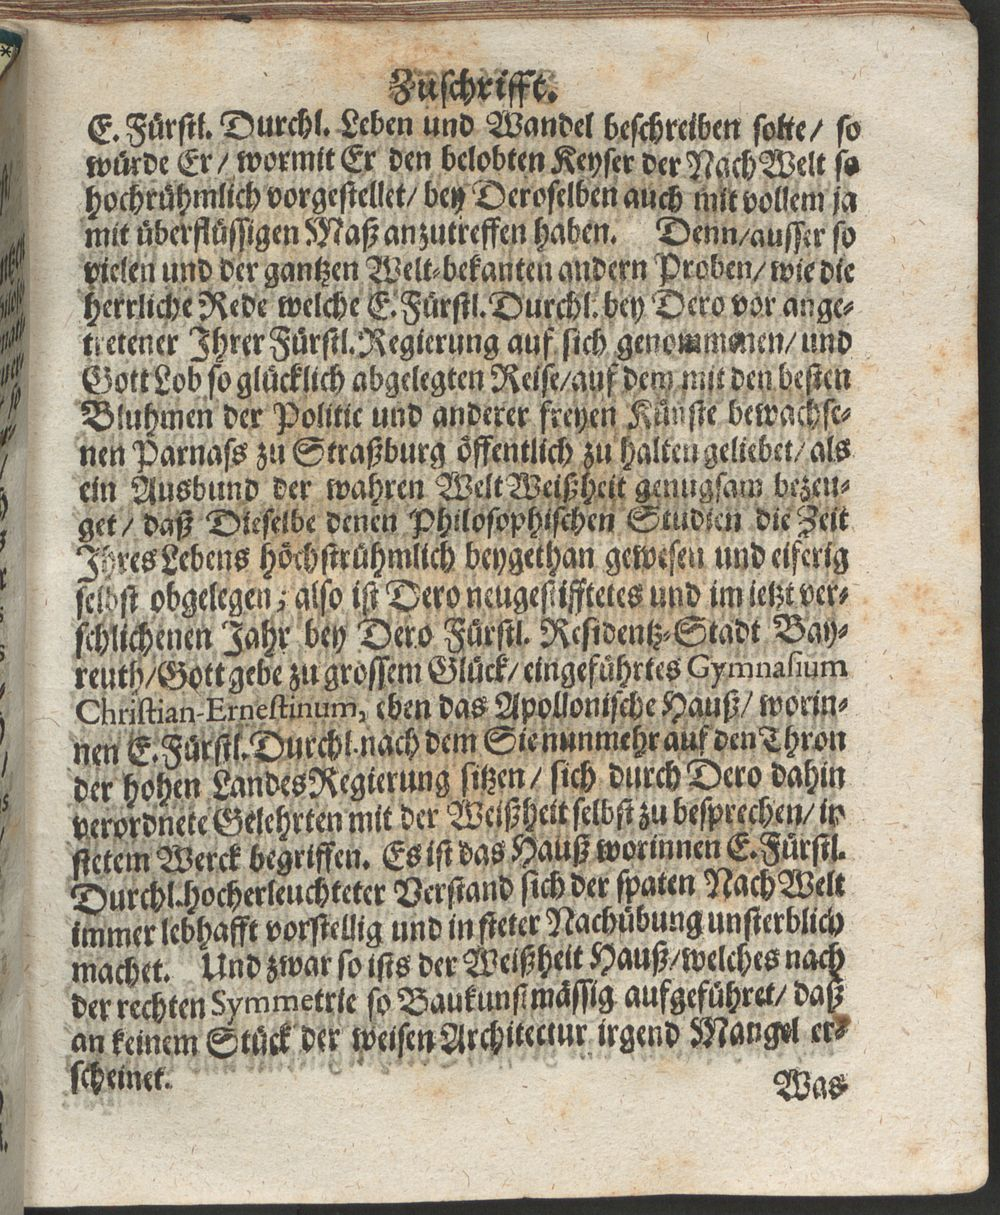 Zuschrifft.
E. Fürstl. Durchl. Leben und Wandel beschreiben solte/ so
würde Er/ wormit Er den belobten Keyser der NachWelt so
hochrühmlich vorgestellet/ bey Deroselben auch mit vollem ja
mit überflüssigen Maß anzutreffen haben. Denn/ausser so
vielen und der gantzen Welt-bekanten andern Proben/ wie die
herrliche Rede welche E. Fürstl. Durchl. bey Dero vor ange-
tretener Ihrer Fürstl. Regierung auf sich genommenen/ und
Gott Lob so glücklich abgelegten Reise/auf dem mit den besten
Bluhmen der Politic und anderer freyen Künste bewachse-
nen Parnass zu Straßburg öffentlich zu halten geliebet/ als
ein Ausbund der wahren WeltWeißheit genugsam bezeu-
get/ daß Dieselbe denen Philosophischen Studien die Zeit
Ihres Lebens höchstrühmlich beygethan gewesen und eiferig
selbst obgelegen; also ist Dero neugestifftetes und im ietzt ver-
schlichenen Jahr bey Dero Fürstl. Residentz-Stadt Bay-
reuth/Gott gebe zu grossem Glück/ eingeführtes Gymnasium
Christian-Ernestinum, eben das Apollonische Hauß/ worin-
nen E. Fürstl. Durchl. nach dem Sie nunmehr auf den Thron
der hohen LandesRegierung sitzen/ sich durch Dero dahin
verordnete Gelehrten mit der Weißheit selbst zu besprechen/ in
stetem Werck begriffen. Es ist das Hauß worinnen E. Fürstl.
Durchl. hocherleuchteter Verstand sich der spaten NachWelt
immer lebhafft vorstellig und in steter Nachübung unsterblich
machet. Und zwar so ists der Weißheit Hauß/welches nach
der rechten Symmetrie so Baukunstmässig aufgeführet/ daß
an keinem Stück der weisen Architectur irgend Mangel er-
scheinet.
Was